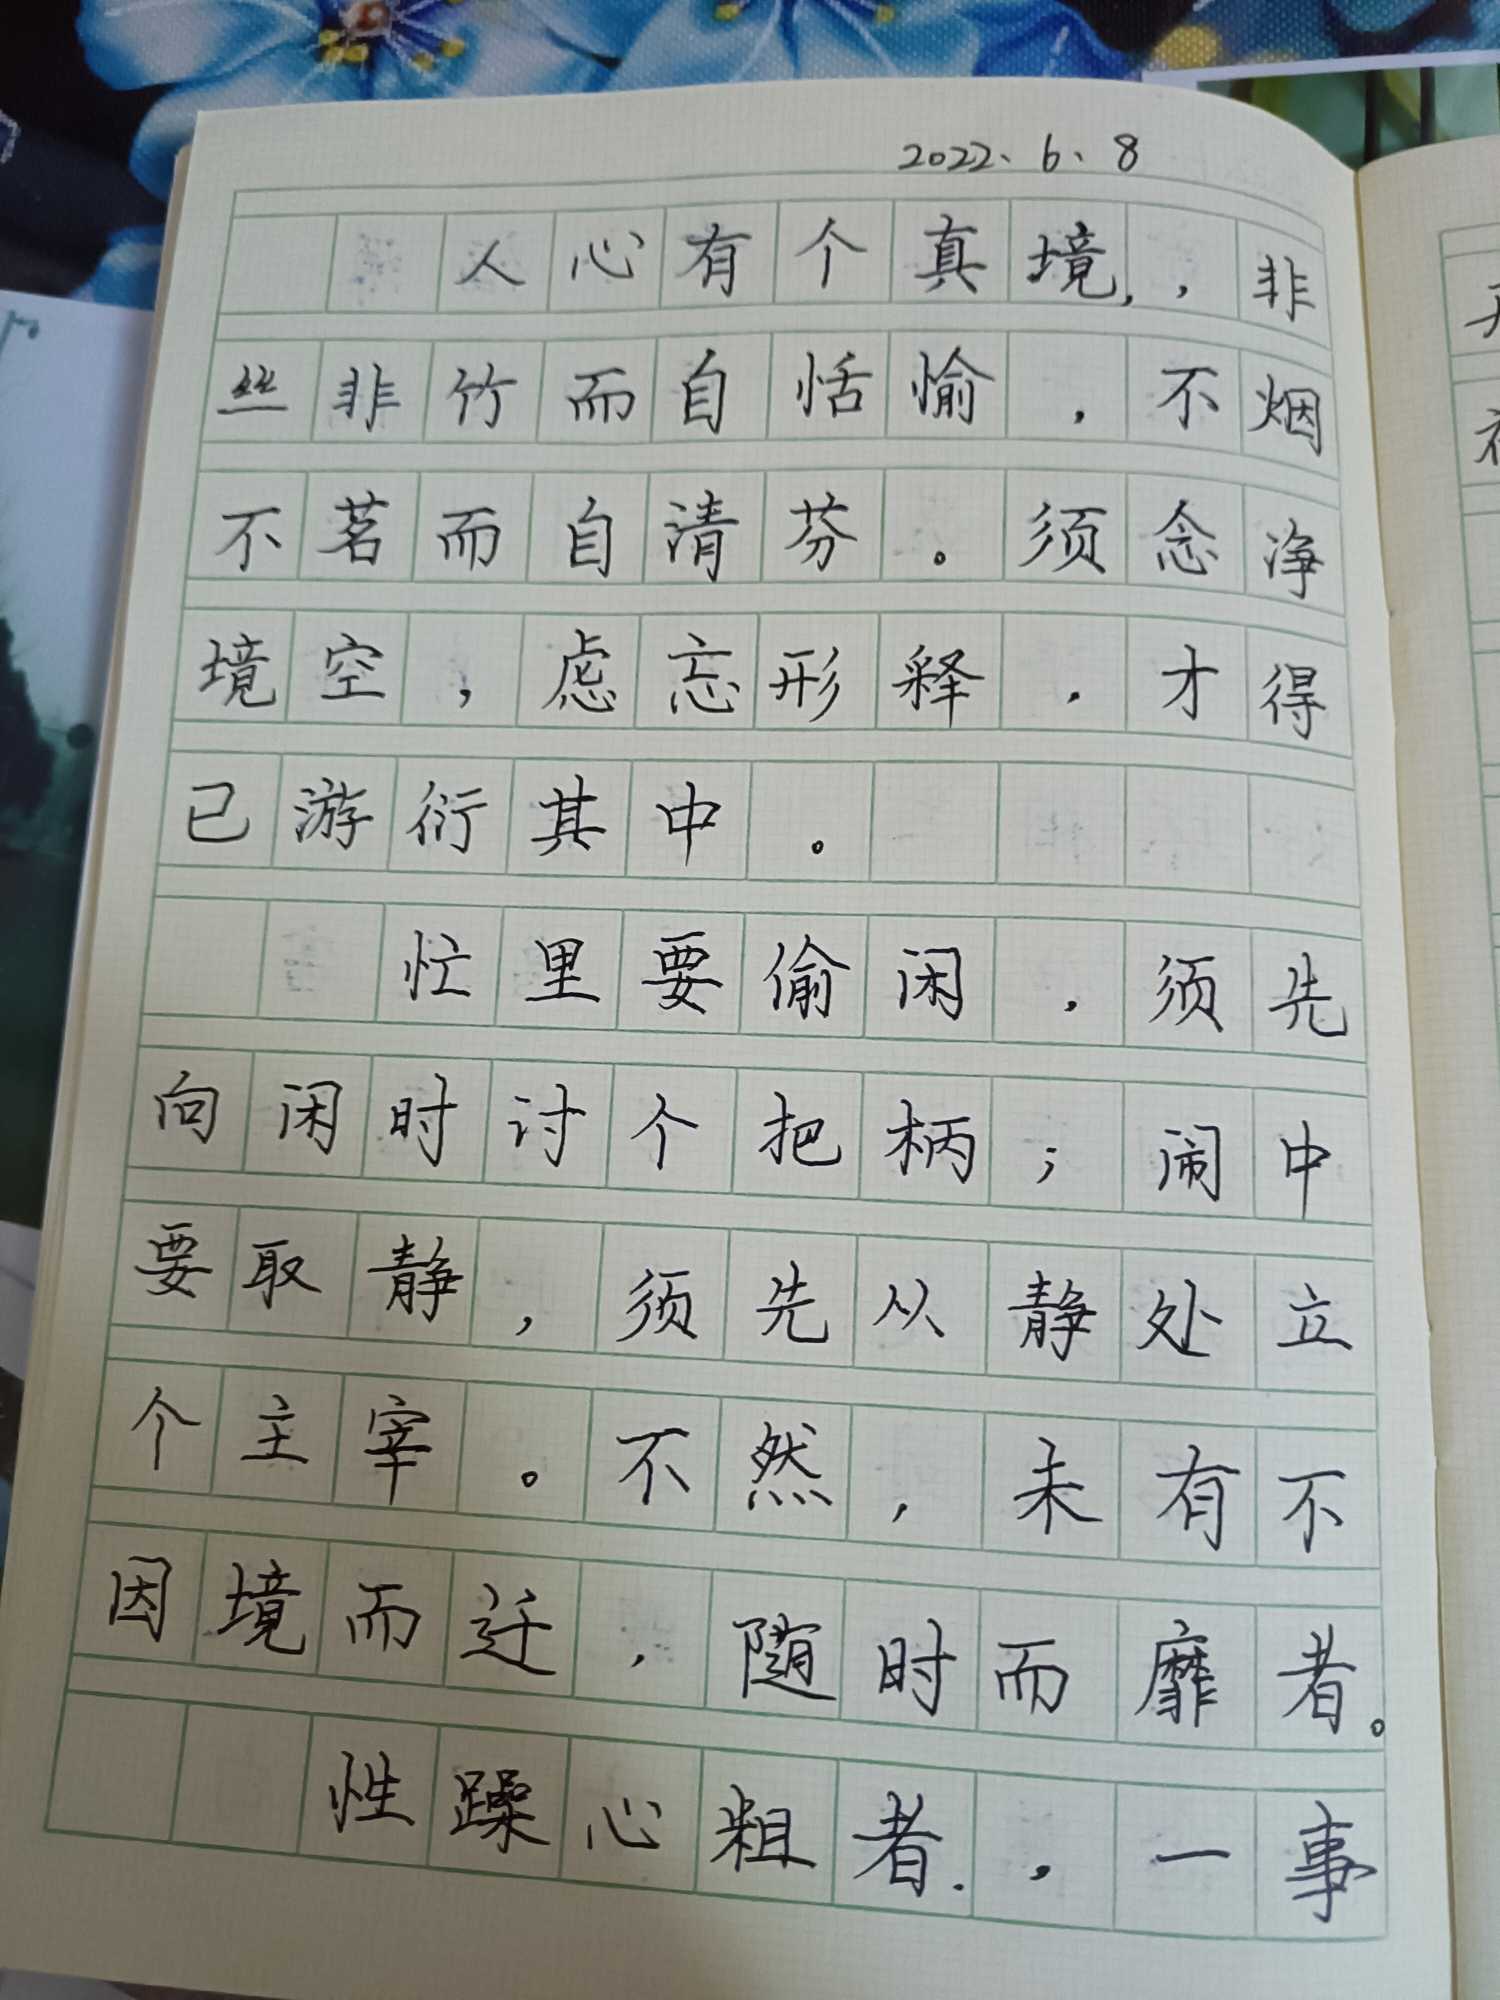 2022、6、8
人心有个真境，，非
丝非竹而自恬愉，不烟
不茗而自清芬。须念净
境空，虑忘形释，才得
已游衍其中。
忙里要偷闲，须先
向闲时讨个把柄；闹中
要取静，须先从静处立
个主宰。不然，未有不
因境而迁，随时而靡者。
性躁心粗者.，一事